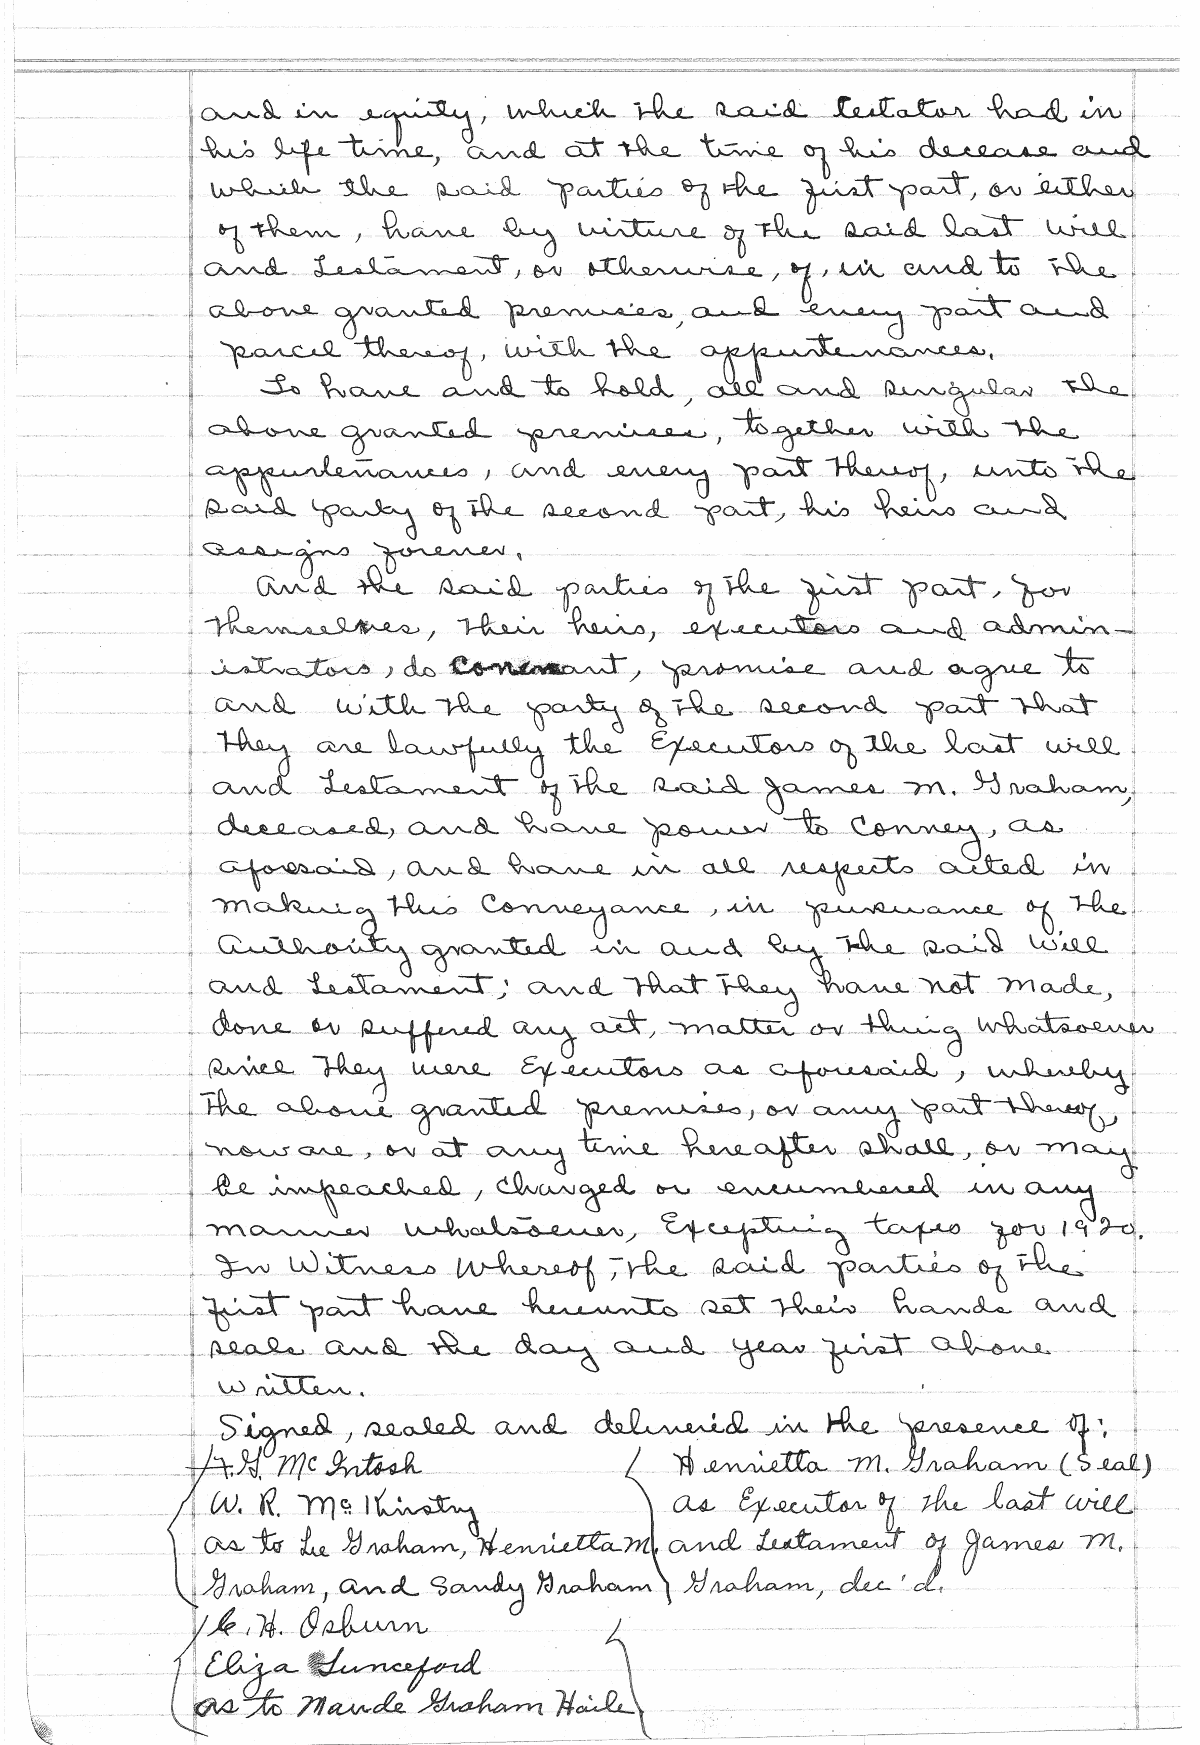 and in equity, which the said testator had in
his life time, and at the time of his decease and
which the said parties of the first part, or either
of them, have by virture of the said last will
and testament, or otherwise, of, in and to the
above granted premises, and every part and
parcel thereof, with the appurtenances.
To have and to hold, all and singular the
above granted premises, together with the
appurtenances, and every part thereof, unto the
said party of the second part, his heirs and
assigns forever.
And the said parties of the first part, for
themselves, their heirs, executors and admin-
istrators, do covenant, promise and agree to
and with the party of the second part that
they are lawfully the Executors of the last will
and testament of the said James M. Graham,
deceased, and have power to Convey, as
aforesaid, and have in all respects acted in
making this Conveyance, in pursuance of the
Authority granted in and by the said will
and testament; and that they have not made,
done or suffered any act, matter or thing whatsoever
since they were Executors as aforesaid, whereby
the above granted premises, or any part thereof,
now are, or at any time hereafter shall, or may
be impeached, charged or encumbered in any
manner whatsoever, Excepting taxes for 1920.
In Witness Whereof, the said parties of the
first part have hereunto set their hands and
seals and the day and year first above
written.
Signed, sealed and delivered in the presence of:
G. McIntosh Henrietta M. Graham (Seal)
W. R. McKinstry as Executor of the last will
as to Lee Graham, Henrietta M. and testament of James M.
Graham, and Sandy Graham Graham, dec'd.
C. H. Osburn
Eliza Lunceford
as to Maude Graham Haile